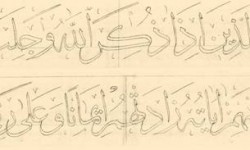 الذين اذا ذكر الله وجلت
هم اياته زادتهم ايمانا وعلى